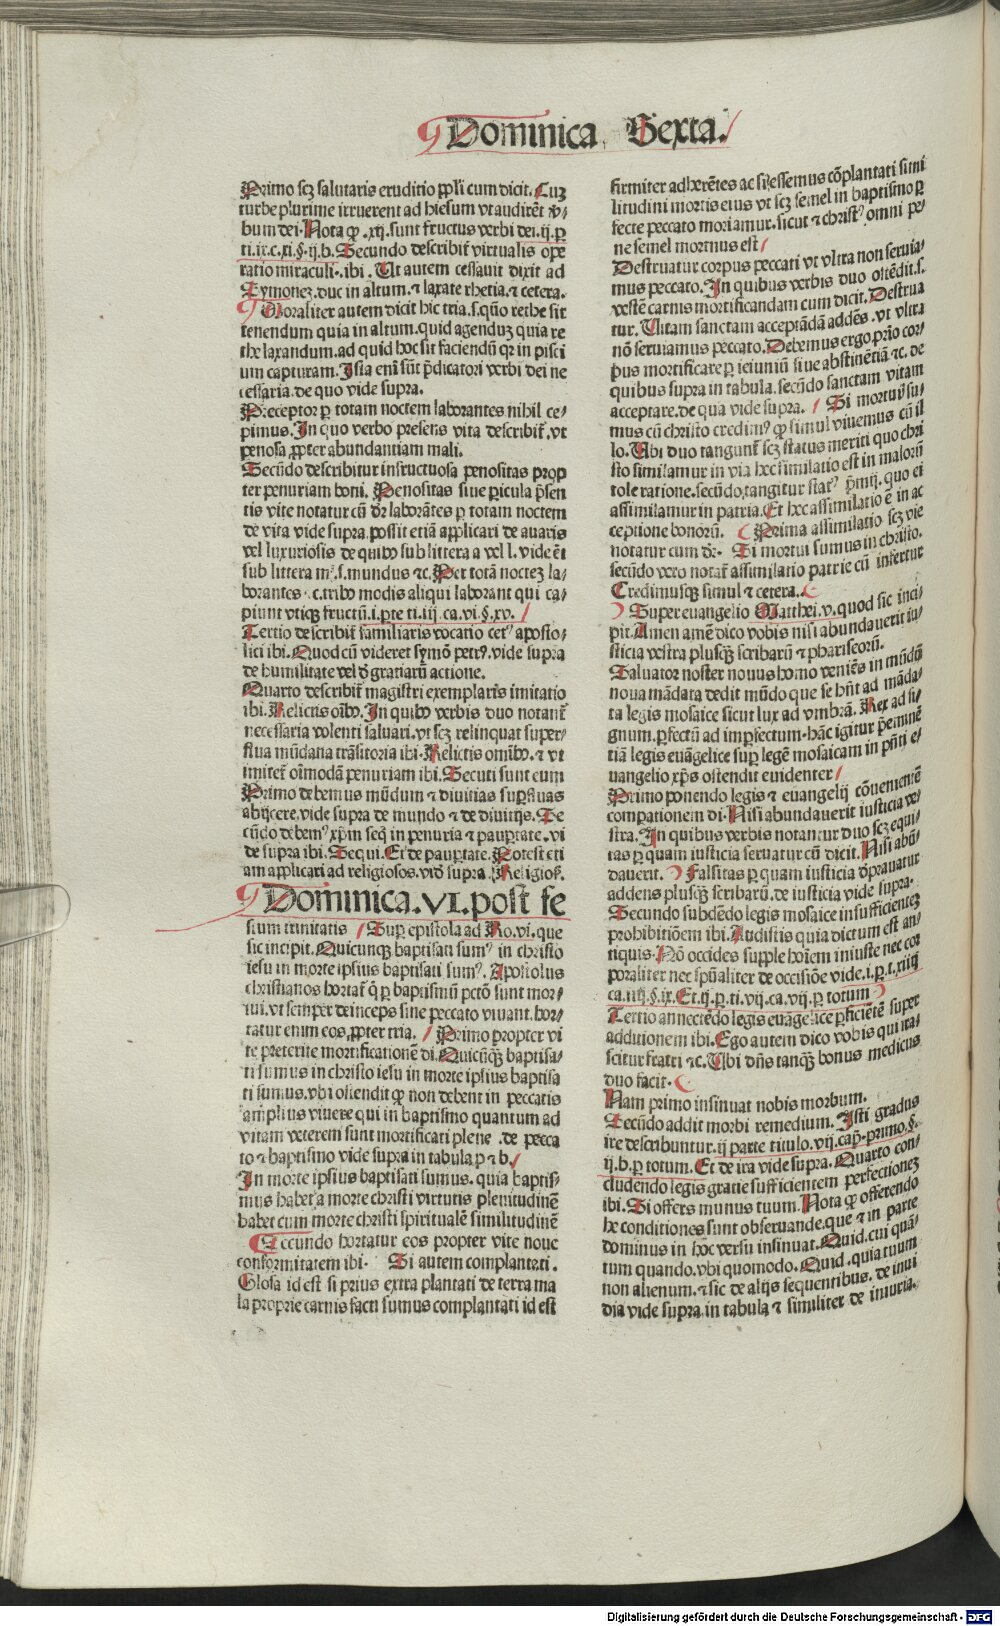 Dominica Sexta.
Primo scʒ salutaris eruditio ppl̄i cum dicit. Cuʒ
turbe plurime irruerent ad hiesum vt audirēt v̄-
bum dei. Nota ꝙ .xij. sunt fructus verbi dei .ij. ꝑ
ti. ix. c. xi. §. ij. b. Secundo describit̄ virtualis ope
ratio miraculi. ibi. Ut autem cessauit dixit ad
Symoneʒ. duc in altum. ⁊ laxate rhetia. ⁊ cetera.
Moraliter autem dicit hic tria. s. quō rethe sit
tenendum quia in altum. quid agenduʒ quia re
the laxandum. ad quid hoc sit faciendū qr in pisci
um capturam. Ista eni sūt p̄dicatori verbi dei ne
cessaria. de quo vide supra.
Preceptor ꝑ totam noctem laborantes nihil ce-
pimus. In quo verbo presens vita describit̄. vt
penosa ꝓpter abundantiam mali.
Secūdo describitur infructuosa penositas prop
ter penuriam boni. Penositas siue ꝑicula p̄sen
tis vite notatur cū dr̄ laborātes ꝑ totam noctem
de vita vide supra. possit etiā applicari de auaris
vel luxuriosis de quibꝰ sub littera a vel l. vide ēt
sub littera m. s. mundus ⁊c. Per totā nocteʒ la-
borantes. c. tribꝰ modis aliqui laborant qui ca-
piunt vtiqꝫ fructū. i. ꝑte ti. iij. ca. vi. §. xv.
Tertio describit̄ familiaris vocatio cetꝰ aposto-
lici ibi. Quod cū videret symō petrꝰ. vide supra
de humilitate vel d̄ gratiarū actione.
Quarto describit̄ magistri exemplaris imitatio
ibi. Relictis oībꝰ. In quibꝰ verbis duo notant̄
necessaria volenti saluari. vt scʒ relinquat super-
flua mūdana trāsitoria ibi. Relictis omībꝰ. ⁊ vt
imitet̄ oīmodā penuriam ibi. Secuti sunt eum
Primo debemus mūdum ⁊ diuitias suꝑfluas
abijcere. vide supra de mundo ⁊ de diuitijs. Se
cūdo debemꝰ xp̄m seq̄ in penuria ⁊ pauꝑtate. vi
de supra ibi. Sequi. Et de pauꝑtate. Potest eti
am applicari ad religiosos. vid̄ supra. Religiosꝰ.
Dominica. VI. post fe
stum trinitatis Suꝑ epistola ad Ro. vi. que
sic incipit. Quicunqꝫ baptisati sumꝰ in christo
iesu in morte ipsius baptisati sumꝰ. Apostolus
christianos hortat̄ ꝙ ꝑ baptismū pctō sunt mor-
tui. vt semper deinceps sine peccato viuant. hor-
tatur enim eos ꝓpter tria. Primo propter vi
te preterite mortificationē di. Quicūqꝫ baptisa-
ti sumus in christo iesu in morte ipsius baptisa
ti sumus. vbi ostendit ꝙ non debent in peccatis
amplius viuere qui in baptismo quantum ad
vitam veterem sunt mortificati plene. de pecca
to ⁊ baptismo vide supra in tabula p ⁊ b.
In morte ipsius baptisati sumus. quia baptis-
mus habet a morte christi virtutis plenitudinē
habet cum morte christi spiritualē similitudinē
Secundo hortatur eos propter vite noue
conformitatem ibi. Si autem complantati.
Glosa id est si prius extra plantati de terra ma
la proprie carnis facti sumus complantati id est
firmiter adherētes ac si essemus cōplantati simi
litudini mortis eius vt scʒ semel in baptismo ꝑ
fecte peccato moriamur. sicut ⁊ christꝰ omni pe-
ne semel mortuus est
Destruatur corpus peccati vt vltra non seruia-
mus peccato. In quibus verbis duo ostēdit. s.
vestē carnis mortificandam cum dicit. Destrua
tur. Uitam sanctam acceptādā addēs. vt vltra
nō seruiamus peccato. Debemus ergo prīo cor-
pus mortificare ꝑ ieiuniū siue abstinētiā ⁊c. de
quibus supra in tabula. secūdo sanctam vitam
acceptare. de qua vide supra. Si mortui su-
mus cū christo credimꝰ ꝙ simul viuemus cū il
lo. Ubi duo tangunt̄ scʒ status meriti quo chri
sto similamur in via hec similatio est in malorū
tole ratione. secūdo tangitur statꝰ p̄mij. quo ei
assimilamur in patria. Et hec assimilatio ē in ac
ceptione bonorū. Prima assimilatio scʒ vie
notatur cum dr̄. Si mortui sumus in christo.
secūdo vero notat̄ assimilatio patrie cū infertur
Credimusqꝫ simul ⁊ cetera.
Super euangelio Matthei. v. quod sic inci-
pit. Amen amē dico vobis nisi abundauerit iu-
sticia vestra plusqꝫ scribarū ⁊ phariseorū.
Saluator noster nouus homo veniēs in mūdū
noua mādata dedit mūdo que se hn̄t ad māda-
ta legis mosaice sicut lux ad vmbrā. Rex ad si-
gnum. ꝑfectū ad imꝑfectum. hāc igitur p̄eminē
tiā legis euāgelice suꝑ legē mosaicam in pn̄ti e-
uangelio xp̄s ostendit euidenter
Primo ponendo legis ⁊ euangelij cōuenientē
comꝑationem di. Nisi abundauerit iusticia ve-
stra. In quibus verbis notantur duo scʒ equi-
tas ꝑ quam iusticia seruatur cū dicit. Nisi abū-
dauerit. Falsitas ꝑ quam iusticia dprauatur
addens plusqꝫ scribarū. de iusticia vide supra.
Secundo subdēdo legis mosaice insufficienteʒ
prohibitiōem ibi. Audistis quia dictum est an-
tiquis. Nō occides supple hoīem iniuste nec cor
poraliter nec spūaliter de occisiōe vide. i. ꝑ. t. xiiij
ca. iiij. §. ix. Et. ij. ꝑ. ti. vij. ca. vij. ꝑ totum
Tertio annectēdo legis euāgelice ꝑficiētē super
additionem ibi. Ego autem dico vobis qui ira-
scitur fratri ⁊c. Ubi dn̄s tanqꝫ bonus medicus
duo facit.
Nam primo insinuat nobis morbum.
Secūdo addit morbi remedium. Isti gradus
ire describuntur. ij parte titulo. vij. cap̄. primo. §.
ij. b. ꝑ totum. Et de ira vide supra. Quarto con-
cludendo legis gratie sufficientem perfectioneʒ
ibi. Si offers munus tuum. Nota ꝙ offerendo
he conditiones sunt obseruande. que ⁊ in parte
dominus in hoc versu insinuat. Quid. cui quā-
tum quando. vbi quomodo. Quid. quia tuum
non alienum. ⁊ sic de alijs sequentibus. de inui
dia vide supra. in tabula ⁊ similiter de iniuria.
Digitalisierung gefördert durch die Deutsche Forschungsgemeinschaft - DFG